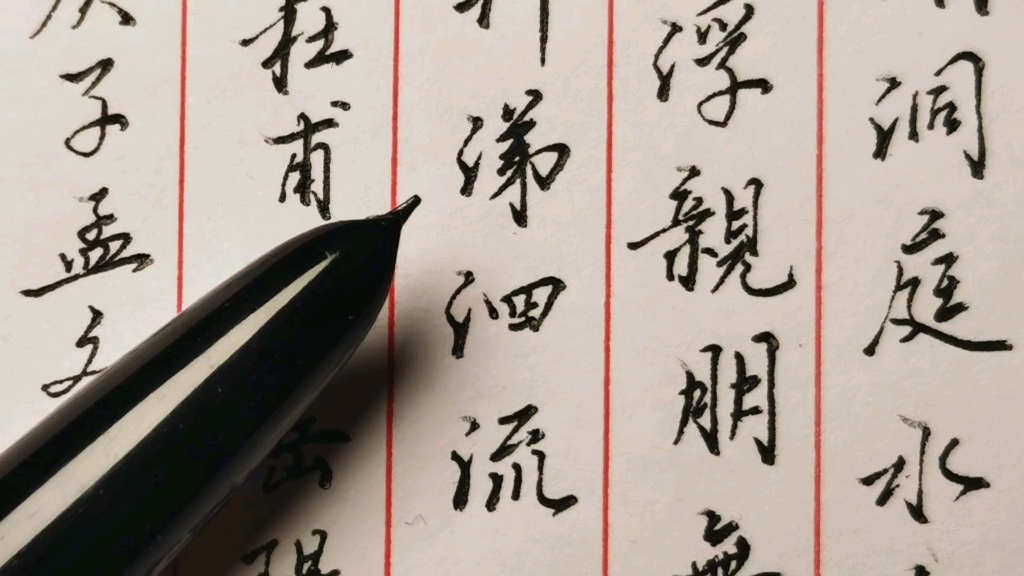 洞庭水
浮親朋無
涕泗流
杜甫 岳陽
子孟冬